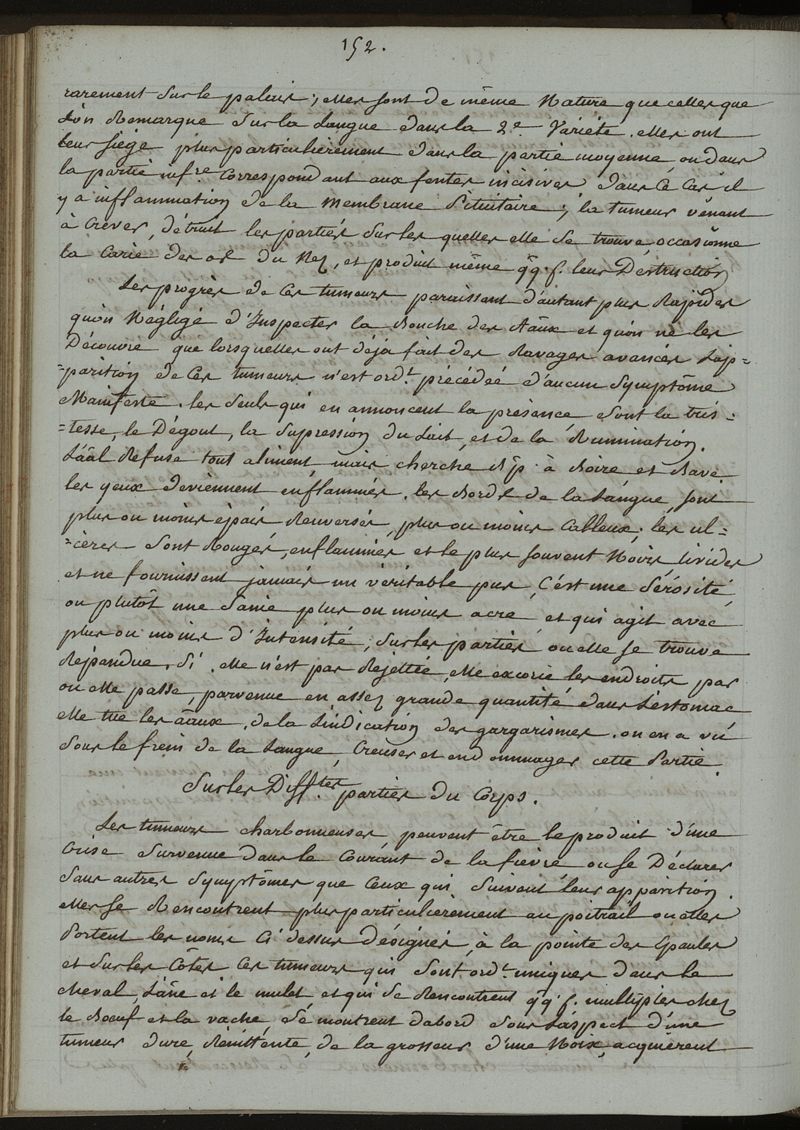 152.
rarement sur le palais; elles sont de même Nature que celles que
L'on Remarque sur la Langue dans la 2e Variété. elles ont
leur siège plus particulièrement dans la partie moyenne, ou dans
la partie infre Correspondant aux fentes incisives dans Ce Cas il
y a inflammation de la Membrane Pituitaire; la tumeur venant
à Crever, détruit les parties sur les quelles elle se trouve, occasionne
la Carie des os du Nez, et produit même qq. f. leur Destruction
Les progrès de Ces tumeurs paraissent d'autant plus Rapides
qu'on Négligé d'Inspecter la Bouche des Aāux et qu'on ne les
Découvre que lorsqu'elles ont déjà fait des Ravages avancés L'ap=
=parition de Ces tumeurs n'est ordt précédée d'aucun Symptôme
Manifeste. les Seuls qui en annoncent la présence sont la tris=
=tesse, le Dégout, la Supression du Lait, et de la Rumination.
L'aāl Refuse tout aliment, mais cherche à Boire et Bave.
les yeux deviennent enflammés. les Bords de la Langue sont
plus ou moins épais Renversés, plus ou moins Calleux; les ul=
=cères sont Rouges, enflammés et le plus souvent Noirs livides
et ne fournissent jamais un véritable pus, C'est une Sérosité
ou plutôt une Sanie plus ou moins acre, et qui agit avec
plus ou moins d'Intensité, sur les parties où elle se trouve
Répandue. Si elle n'est pas Rejettée, elle excorie les endroits par
où elle passe, parvenue en assez grande quantité dans L'estomac
elle tue les aāux. de la L'indication des gargarismes. on en a vu
sous le frein de la Langue, Creuser et endommager cette Partie.
Sur les Difftes parties du Corps.
Les tumeurs charbonneuses peuvent être le produit d'une
Crise Survenue dans le Courant de la fièvre ou se Déclarer
sans autres Symptômes que Ceux qui Suivent leur apparition.
elles se Rencontrent plus particulièrement au poitrail où elles
Portent les noms Ci dessus Désignés, à la pointe des Epaules
et sur les Côtes Ces tumeurs qui sont ordt uniques dans le
Cheval, L'âne et le mulet et qui se Rencontrent qq. f. multiples chez
le Bœuf et la vache, se montrent d'abord sous L'aspect d'une
tumeur dure, Rénittente, de la grosseur d'une Noix, acquierent